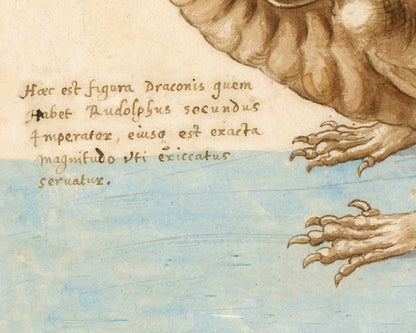 Hæc est figura Draconis quem
habet Rudolphus secundus
Imperator, eiusq est exacta
magnitudo vti exiccatus
seruatur.